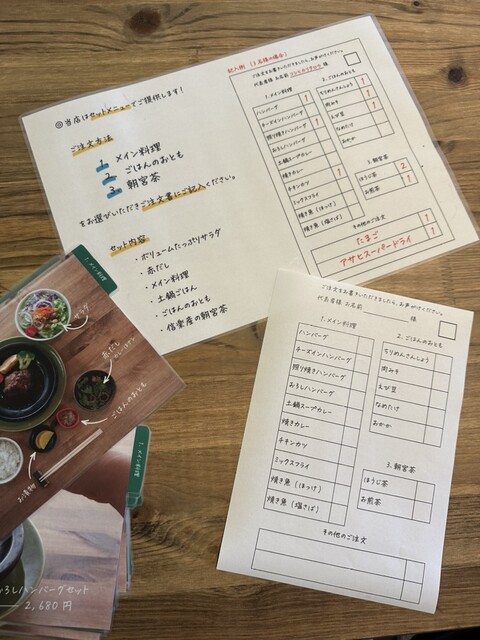 ◎ 当店はセットメニューでご提供します！
ご注文方法
1. メイン料理
2. ごはんのおとも
3. 朝宮茶
をお選びいただきご注文書にご記入ください。
セット内容
・ボリュームたっぷりサラダ
・赤だし
・メイン料理
・土鍋ごはん
・ごはんのおとも
・信楽産の朝宮茶
記入例 (3名様の場合)
ご注文をお書きいただきましたら、お声がけください。
代表者様 お名前
様
1. メイン料理
ハンバーグ 1
チーズインハンバーグ
照り焼きハンバーグ 1
おろしハンバーグ
土鍋スープカレー
焼きカレー
チキンカツ 1
ミックスフライ
焼き魚 (ほっけ)
焼き魚 (塩さば)
2. ごはんのおとも
ちりめんさんしょう 1
肉みそ 1
えび豆 1
なめたけ
おかか
3. 朝宮茶
ほうじ茶 2
お煎茶 1
その他のご注文
たまご 1
アサヒスーパードライ 1
ご注文をお書きいただきましたら、お声がけください。
代表者様 お名前 様
1. メイン料理
ハンバーグ
チーズインハンバーグ
照り焼きハンバーグ
おろしハンバーグ
土鍋スープカレー
焼きカレー
チキンカツ
ミックスフライ
焼き魚 (ほっけ)
焼き魚 (塩さば)
2. ごはんのおとも
ちりめんさんしょう
肉みそ
えび豆
なめたけ
おかか
3. 朝宮茶
ほうじ茶
お煎茶
その他のご注文
1. メイン料理
サラダ
赤だし
ごはんのおとも
お漬物
1. メイン料理
ろしハンバーグセット
2,680円